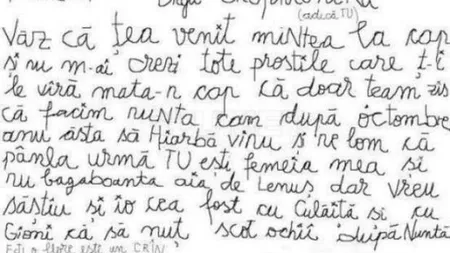 (adică TU)
Văz că țea venit miNtea la cap
și nu m-ai crezi tote prostile care ț-li
le viră mata-n cap că doar team zis
că facim nuNta cam după octombre
anu ăsta să Hiarbă vinu și ne lom că
pânla urmă TU ești femeia mea si
nu bagaboanta aia de Lenuș dar vreu
săștiu si io cea fost cu Culaită si cu
Gioni că să nuț scot ochii după Nuntă
Ești o flore ești un CRIN